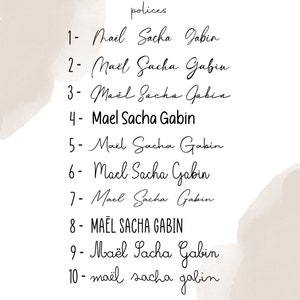 polices
1- Maël Sacha Gabin
2- Maël Sacha Gabin
3- Maël Sacha Gabin
4- Mael Sacha Gabin
5- Maël Sacha Gabin
6- Mael Sacha Gabin
7- Mael Sacha Gabin
8- MAËL SACHA GABIN
9- Maël Sacha Gabin
10- maël sacha gabin